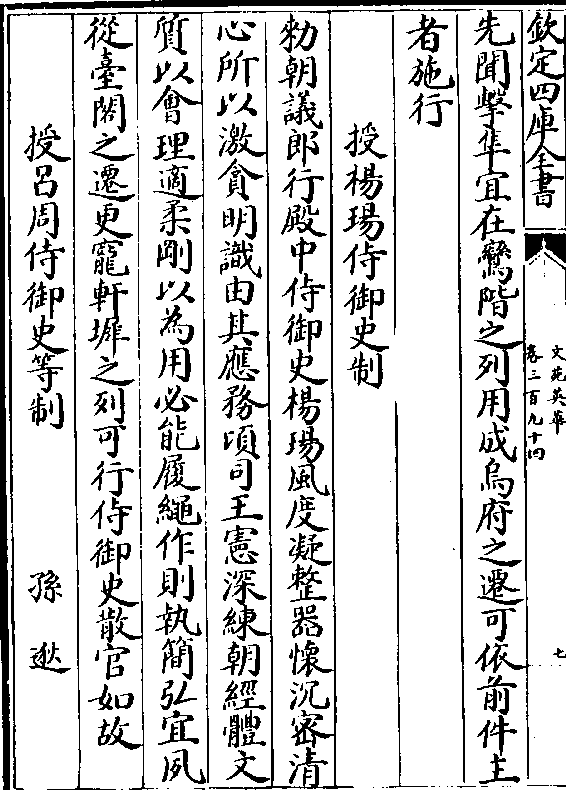 欽定四庫全書
文苑英華
卷三百九十四
七
先聞擊隼宜在鵷階之列用成烏府之遷可依前件主
者施行
授楊瑒侍御史制
勑朝議郎行殿中侍御史楊瑒風度凝整器懷沉密清
心所以激貪明識由其應務頃司王憲深練朝經體文
質以會理適柔剛以為用必能履繩作則執簡弘宜夙
從臺閣之遷更寵軒墀之列可行侍御史散官如故
授呂周侍御史等制 孫逖